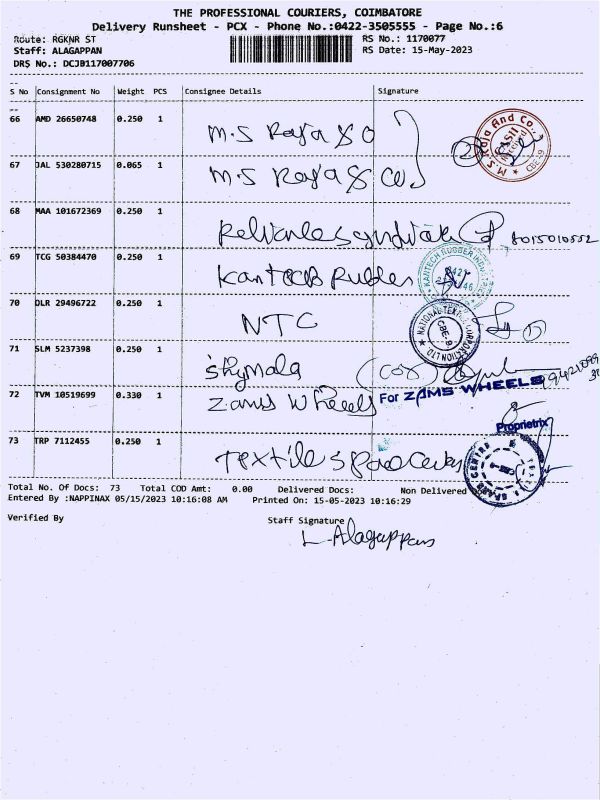 THE PROFESSIONAL COURIERS, COIMBATORE
Delivery Runsheet - PCX - Phone No.:0422-3505555 - Page No.:6
Route: RGKNR ST
RS No.: 1170077
Staff: ALAGAPPAN
RS Date: 15-May-2023
DRS No.: DCJB117007706
S No Consignment No Weight PCS Consignee Details Signature
66 AMD 26650748 0.250 1
M.S Raja & O
67 JAL 530280715 0.065 1
M.S Raja & Co
M.S. Raja And Co., CASH CBE-9
68 MAA 101672369 0.250 1
8015010552
69 TCG 50384470 0.250 1
Kantech Rubber
KANTECH RUBBER
70 DLR 29496722 0.250 1
NTC
NATIONAL TEXTILE CORPORATION LTD CBE-9
71 SLM 5237398 0.250 1
Shymala
72 TVM 10519699 0.330 1
Zams Wheels
For ZAMS WHEELS
Proprietrix
73 TRP 7112455 0.250 1
Textile Space Centre
Total No. Of Docs: 73 Total COD Amt: 0.00 Delivered Docs: Non Delivered
Entered By :NAPPINAX 05/15/2023 10:16:08 AM Printed On: 15-05-2023 10:16:29
Verified By
Staff Signature
L. Alagappan